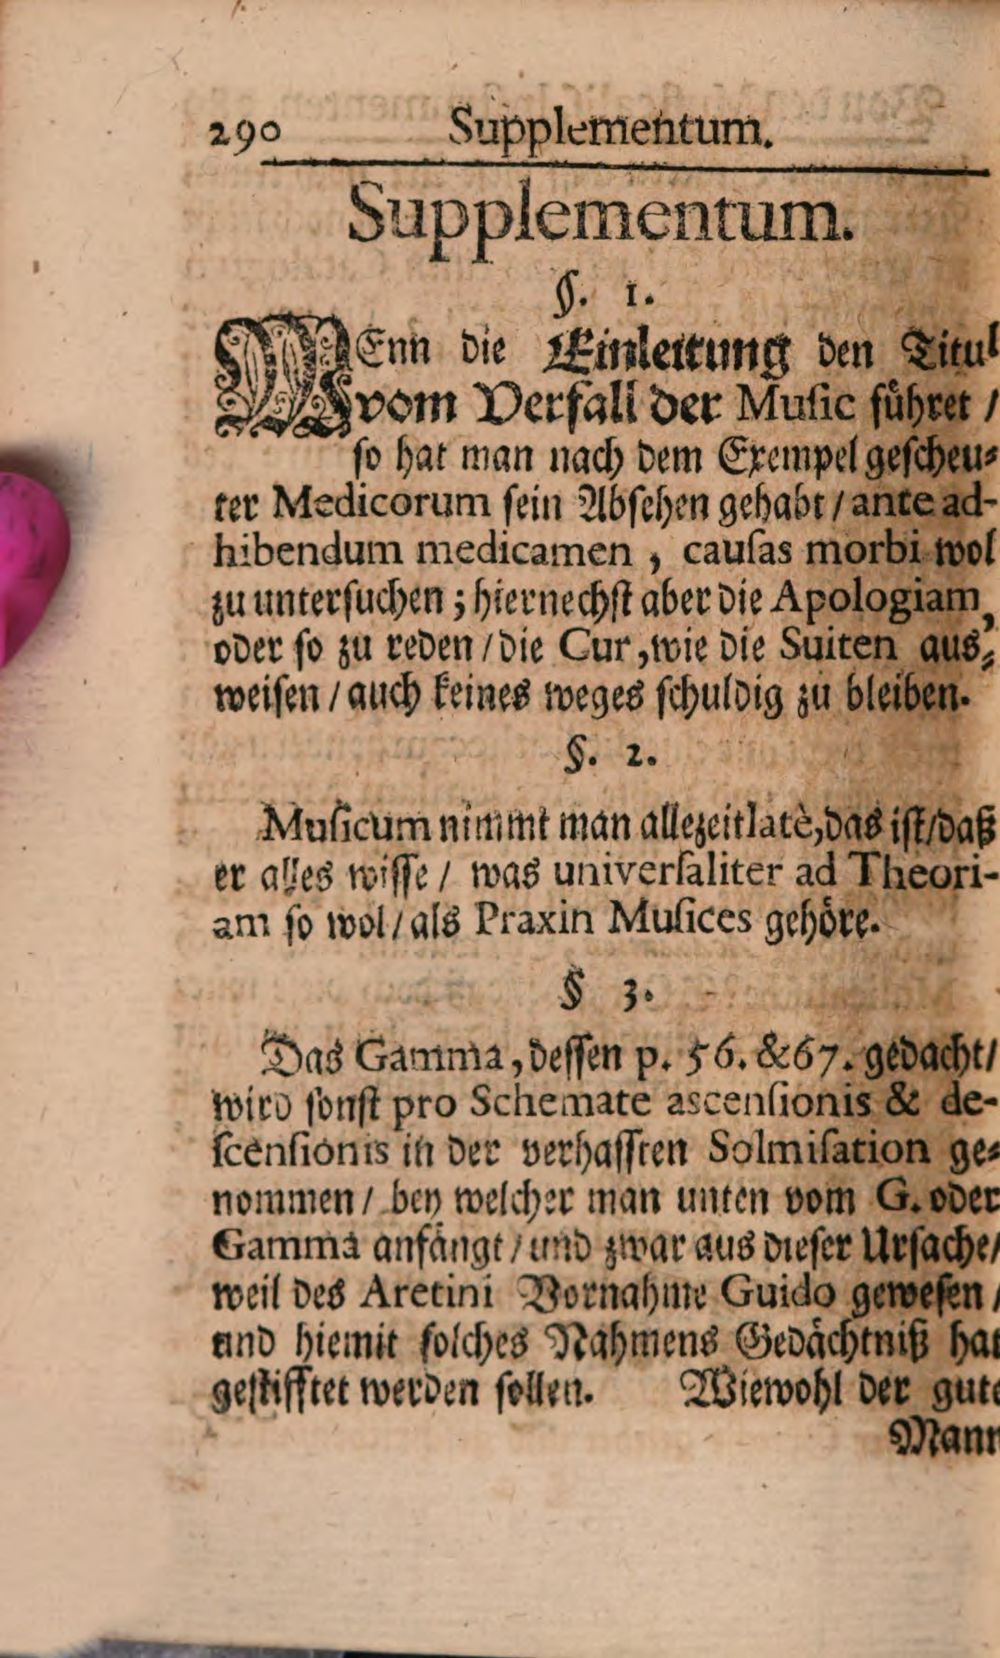 290 Supplementum.
Supplementum.
§. 1.
WEnn die Einleitung den Titul
vom Verfall der Muſic fuͤhret /
ſo hat man nach dem Exempel geſcheu⸗
ter Medicorum ſein Abſehen gehabt / ante ad-
hibendum medicamen , cauſas morbi wol
zu unterſuchen ; hiernechſt aber die Apologiam,
oder ſo zu reden / die Cur, wie die Suiten aus⸗
weiſen / auch keines weges ſchuldig zu bleiben.
§. 2.
Muſicum nimmt man allezeit latè, das iſt / daß
er alles wiſſe / was univerſaliter ad Theori-
am ſo wol / als Praxin Muſices gehoͤre.
§ 3.
Das Gamma, deſſen p. 56. &67. gedacht /
wird ſonſt pro Schemate ascenſionis & de-
ſcenſionis in der verhaſſten Solmiſation ge⸗
nommen / bey welcher man unten vom G. oder
Gamma anfaͤngt / und zwar aus dieſer Urſache /
weil des Aretini Vornahme Guido geweſen /
und hiemit ſolches Nahmens Gedaͤchtniß hat
geſtifftet werden ſollen. Wiewohl der gute
Mann